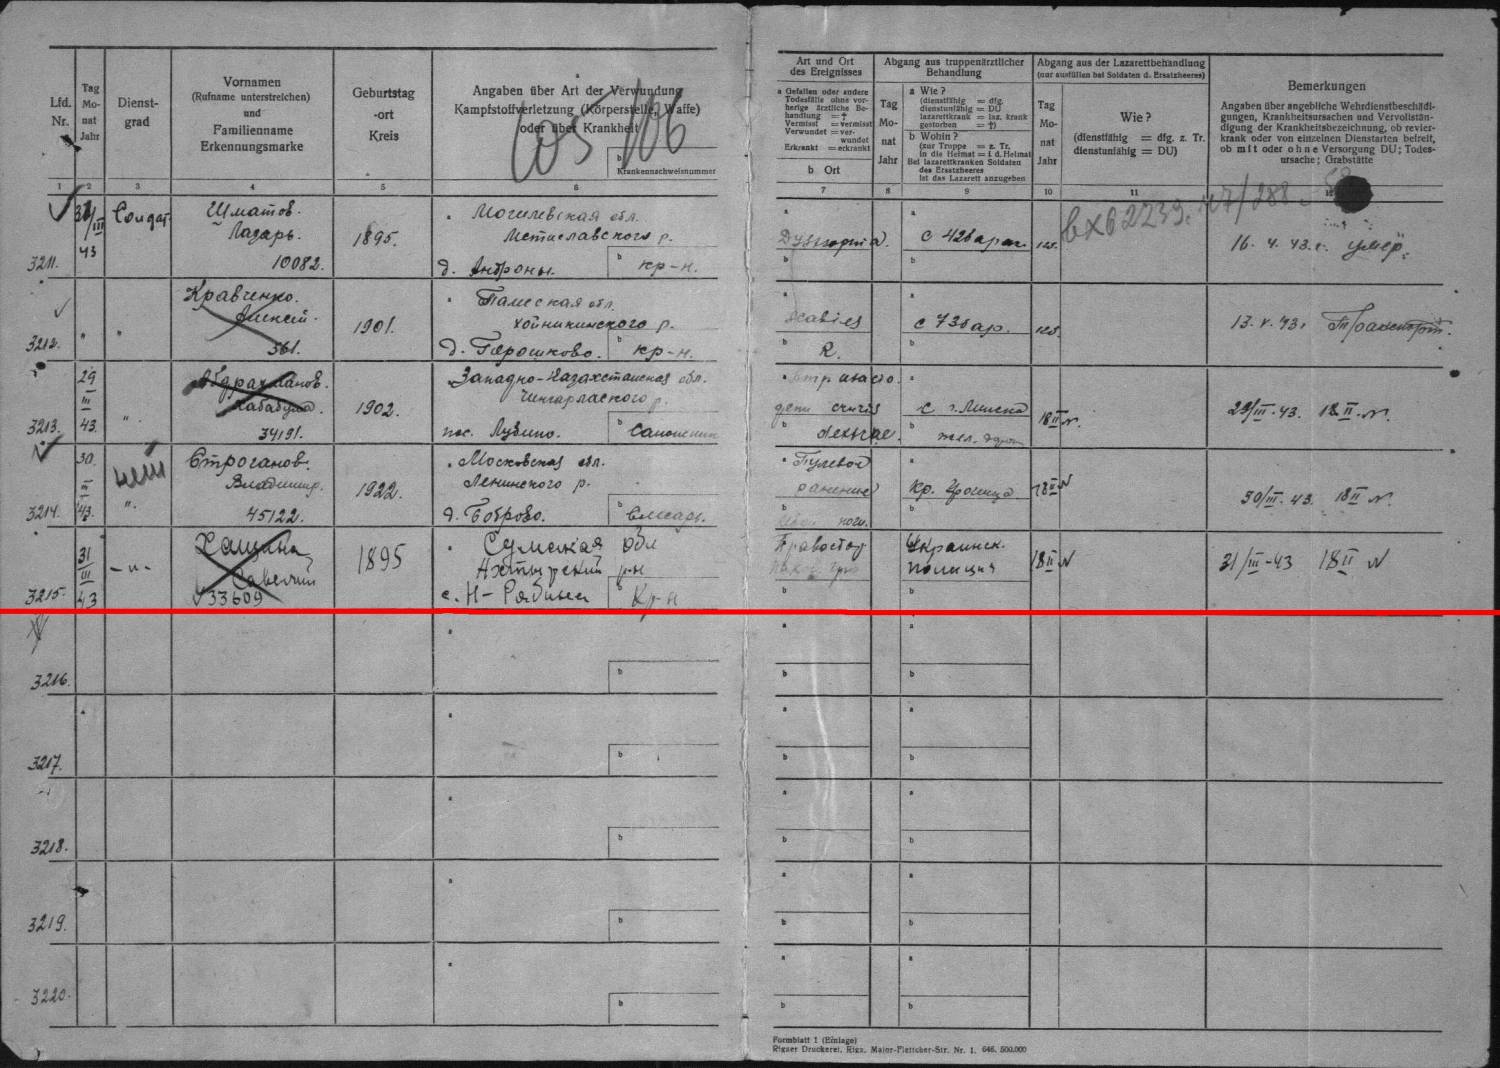 Lfd. Nr.
Tag Mo- nat Jahr
Dienst- grad
Vornamen
(Rufname unterstreichen)
und
Familienname
Erkennungsmarke
Geburtstag
-ort
Kreis
Angaben über Art der Verwundung
Kampfstoffverletzung (Körperstelle, Waffe)
oder über Krankheit
b
Krankennachweisnummer
105 106
Art und Ort
des Ereignisses
a Gefallen oder andere
Todesfälle ohne vor-
herige ärztliche Be-
handlung = †
Vermisst = vermisst
Verwundet = ver-
wundet
Erkrankt = erkrankt
b Ort
Abgang aus truppenärztlicher
Behandlung
Tag
Mo-
nat
Jahr
a Wie?
(dienstfähig = dfg.
dienstunfähig = DU
lazarettkrank = laz. krank
gestorben = †)
b Wohin?
(zur Truppe = z. Tr.
in die Heimat = i. d. Heimat
Bei lazarettkranken Soldaten
des Ersatzheeres
ist das Lazarett anzugeben
Abgang aus der Lazarettbehandlung
(nur ausfüllen bei Soldaten d. Ersatzheeres)
Tag
Mo-
nat
Jahr
Wie?
(dienstfähig = dfg. z. Tr.
dienstunfähig = DU)
Bemerkungen
Angaben über angebliche Wehrdienstbeschädi-
gungen, Krankheitsursachen und Vervollstän-
digung der Krankheitsbezeichnung, ob revier-
krank oder von einzelnen Dienstarten befreit,
ob mit oder ohne Versorgung DU; Todes-
ursache; Grabstätte
1 2 3 4 5 6 7 8 9 10 11
вх 62239.
3211.
III
43
Солдат
Шматов.
Лазарь.
10082.
1895.
a Могилевская обл.
Мстиславского р.
д. Антроны.
b кр-н.
a
b
a с 42 барак
b
16. 4. 43. г. умер.
3212.
"
"
Кравченко.
Алексей.
561.
1901.
a Полеская обл.
хойникинского р.
д.
b кр-н.
a scabies
b R.
a с 73 бар.
b
13. V. 43. Транспорт.
3213.
29
III
43.
"
Абдрахманов.
34191.
1902.
Западно-Казахстанская обл.
р.
пос.
b
a
b
a с г. Минска
b
18 II N.
29/III-43. 18 II N.
3214.
30.
III
43.
"
Строганов.
Владимир.
45122.
1922.
a Московская обл.
Ленинского р.
д. Боброво.
b слесарь.
a Пулевое
ранение
b ноги.
a кр. Троица
b
18 II N
30/III-43. 18 II N.
3215.
31
III
43
-"-
Савелий
33609
1895
a Сумская обл
Ахтырский р-н
с. Н-Рябина
b Кр-н
b
a Украинск.
полиция
b
18 II N
31/III-43 18 II N
3216.
a
b
a
b
a
b
3217.
a
b
a
b
a
b
3218.
a
b
a
b
a
b
3219.
a
b
a
b
a
b
3220.
a
b
a
b
a
b
Formblatt 1 (Einlage)
Rigaer Druckerei, Riga, Major-Fletcher-Str. Nr. 1. 646. 500.000